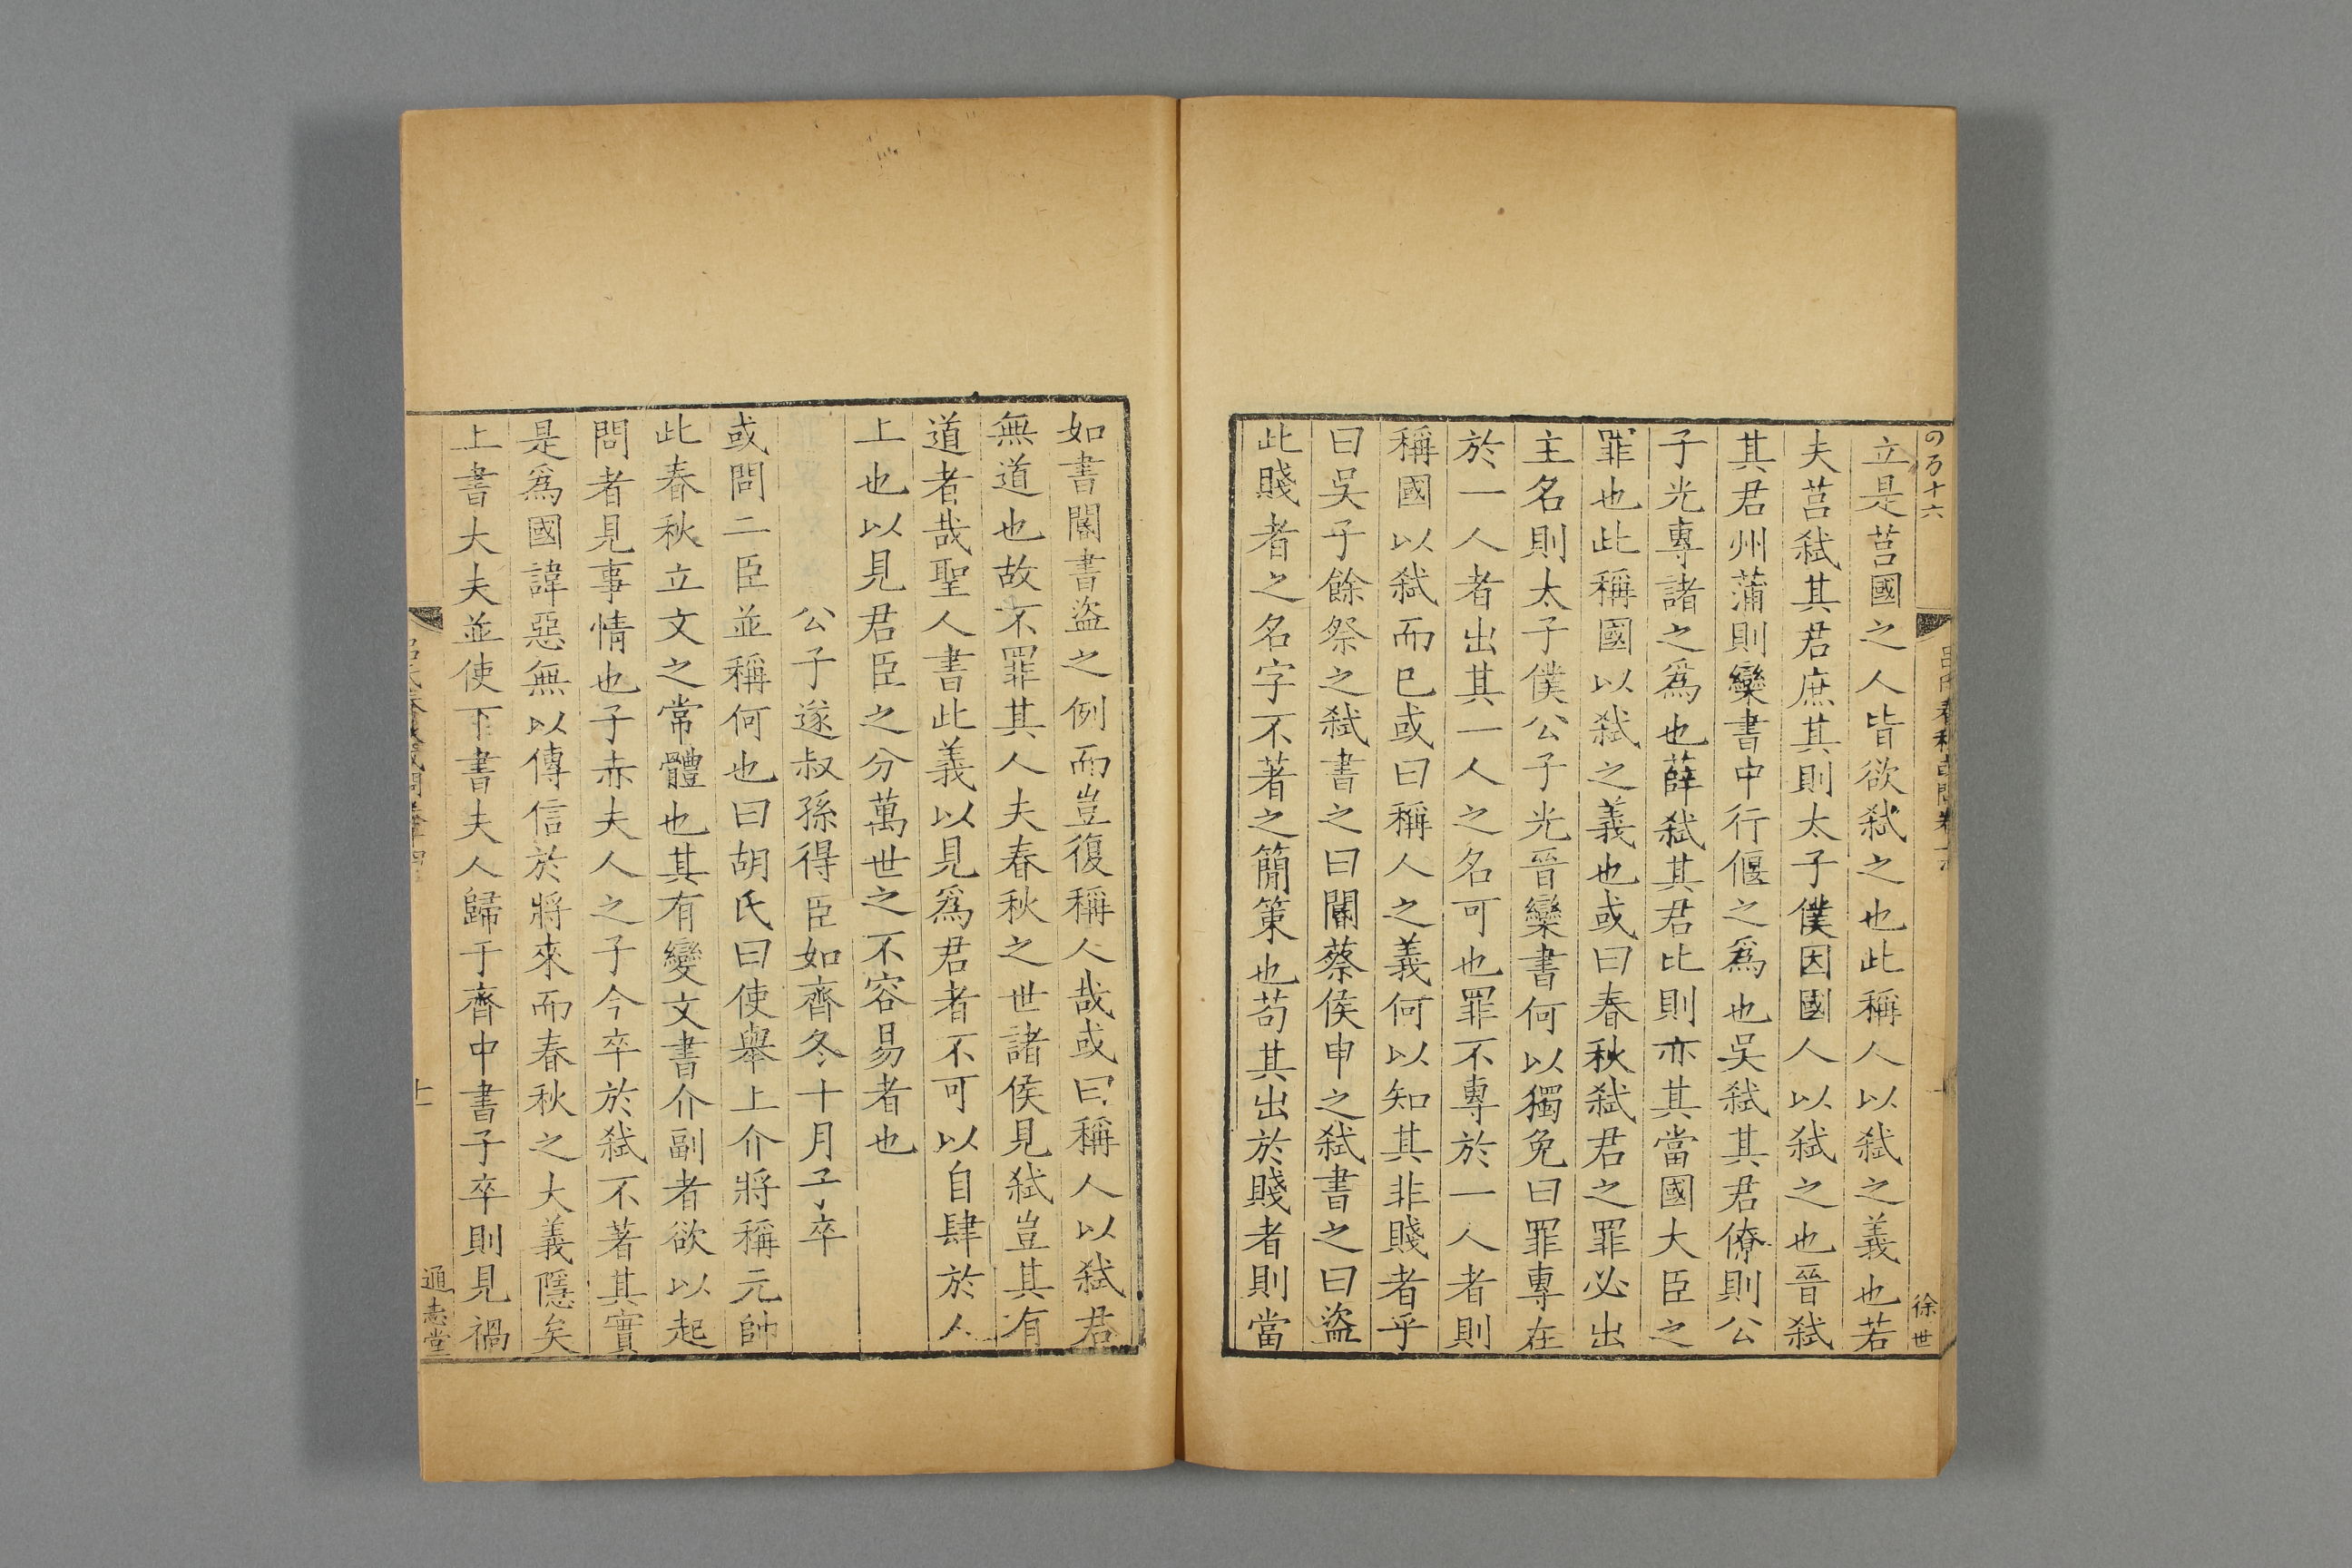 立是莒國之人皆欲弑之也此稱人以弑之義也若
夫莒弑其君庶其則太子僕因國人以弑之也晉弑
其君州蒲則欒書中行偃之爲也吳弑其君僚則公
子光專諸之爲也薛弑其君比則亦其當國大臣之
罪也此稱國以弑之義也或曰春秋弑君之罪必出
主名則太子僕公子光晉欒書何以獨免曰罪專在
於一人者出其一人之名可也罪不專於一人者則
稱國以弑而已或曰稱人之義何以知其非賤者乎
曰吳子餘祭之弑書之曰閽蔡侯申之弑書之曰盜
此賤者之名字不著之簡策也苟其出於賤者則當
徐世
如書閽書盜之例而豈復稱人哉或曰稱人以弑君
無道也故不罪其人夫春秋之世諸侯見弑豈其有
道者哉聖人書此義以見爲君者不可以自肆於人
上也以見君臣之分萬世之不容易者也
公子遂叔孫得臣如齊冬十月子卒
或問二臣並稱何也曰胡氏曰使舉上介將稱元帥
此春秋立文之常體也其有變文書介副者欲以起
問者見事情也子赤夫人之子今卒於弑不著其實
是爲國諱惡無以傳信於將來而春秋之大義隱矣
上書大夫並使下書夫人歸于齊中書子卒則見禍
通志堂